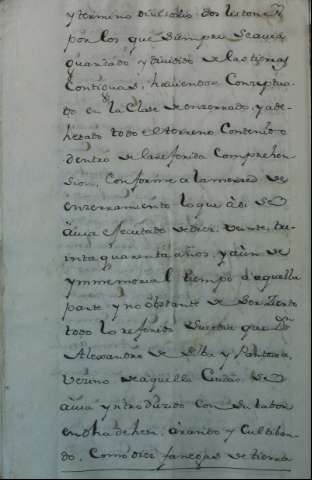 y termino divisorio dos
por los que siempre se avia
guardado y dividido de las tierras
Contiguas, haviendose Conseptua
do en la Clase de enzerrado, y ade-
hesado todo el terreno Contenido
dentro de la referida Comprehen
sion, Conforme a la merced de
enzerramiento lo que assi se
avia efecutado de diez, veinte, tre-
inta quarenta años, y aun de
ymmemorial tiempo a aquella
parte y no obstante de ser zierto
todo lo referido Sucedia que Dn
Alexandro de y Pantoxa,
Vezino de aquella Ciudad se
avia yntroduzido con su labor
en dha dehesa, arando y Cultiban-
do, Como diez fanegas de tierra